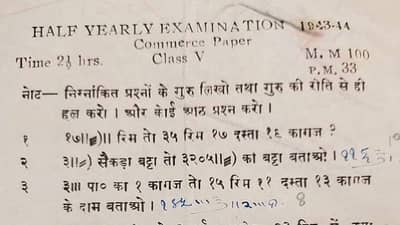 HALF YEARLY EXAMINATION 1943-44
Commerce Paper
Time 2½ hrs. Class V M. M 100
P. M. 33
नोट— निम्नांकित प्रश्नों के गुरु लिखो तथा गुरु की रीति से ही
हल करो। और कोई आठ प्रश्न करो।
१ १७॥=)॥ रिम तो ३५ रिम १७ दस्ता १६ कागज ?
२ ३॥=) सैकड़ा बट्टा तो ३२०५॥=) का बट्टा बताओ।
३ ३॥। पा० का १ कागज तो १५ रिम ११ दस्ता १३ कागज
के दाम बताओ।